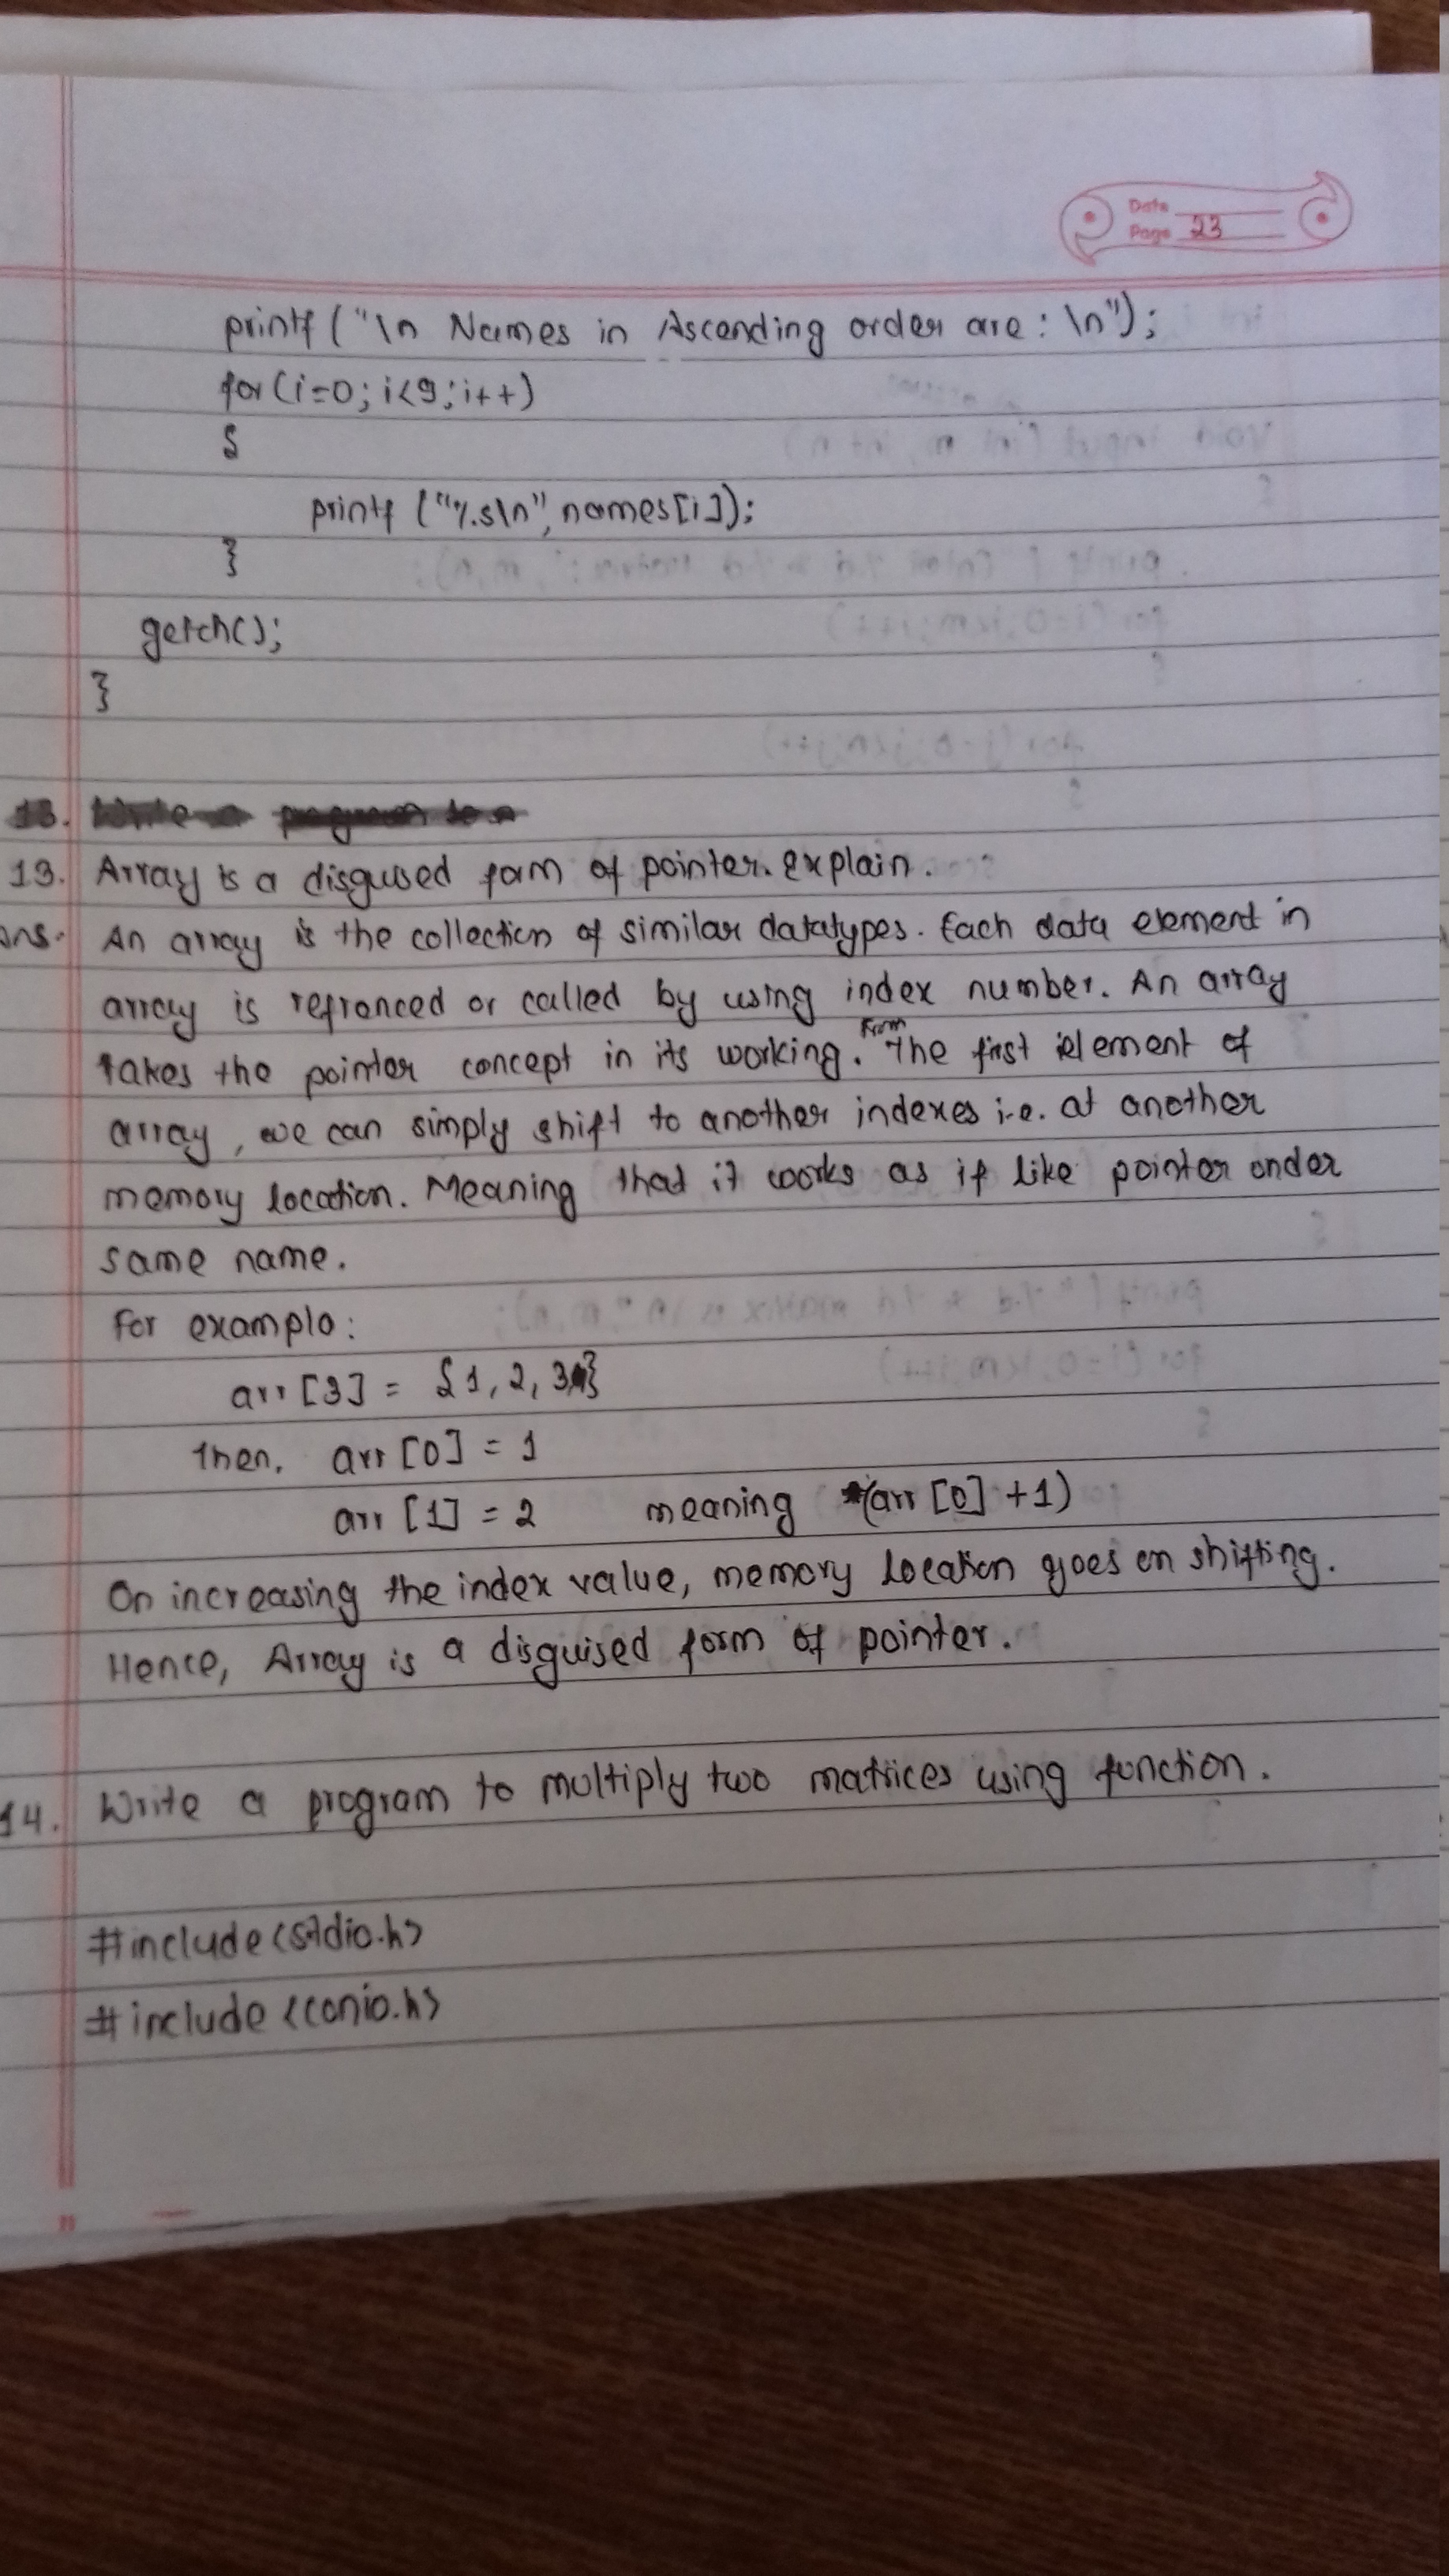 Date
Page 23
printf ("\n Names in Ascending order are : \n");
for(i=0; i<9; i++)
{
printf ("%s\n", names[i]);
}
getch();
}
13.
13. Array is a disgused form of pointer. Explain.
Ans. An array is the collection of similar datatypes. Each data element in
array is refranced or called by using index number. An array
takes the pointer concept in its working. From The first element of
array, we can simply shift to another indexes i.e. at another
memory location. Meaning that it works as if like pointer under
same name.
For example:
arr [3] = {1, 2, 3}
Then, arr [0] = 1
arr [1] = 2 meaning *(arr [0] +1)
On increasing the index value, memory location goes on shifting.
Hence, Array is a disguised form of pointer.
14. Write a program to multiply two matrices using function.
#include <stdio.h>
#include <conio.h>